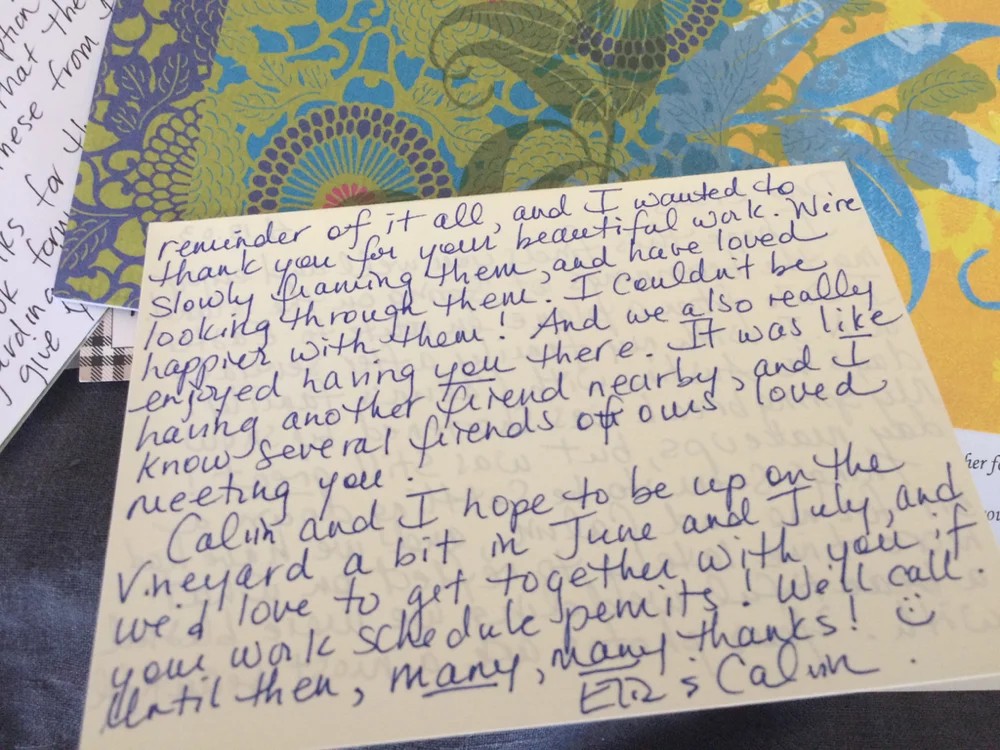 reminder of it all, and I wanted to
thank you for your beautiful work. We're
slowly framing them, and have loved
looking through them. I couldn't be
happier with them! And we also really
enjoyed having you there. It was like
having another friend nearby, and I
know several friends of ours loved
meeting you.
Calvin and I hope to be up on the
Vineyard a bit in June and July, and
we'd love to get together with you if
your work schedule permits! We'll call.
Until then, many, many thanks! :)
Calvin
ption
that the
these from
for
form
give
her f